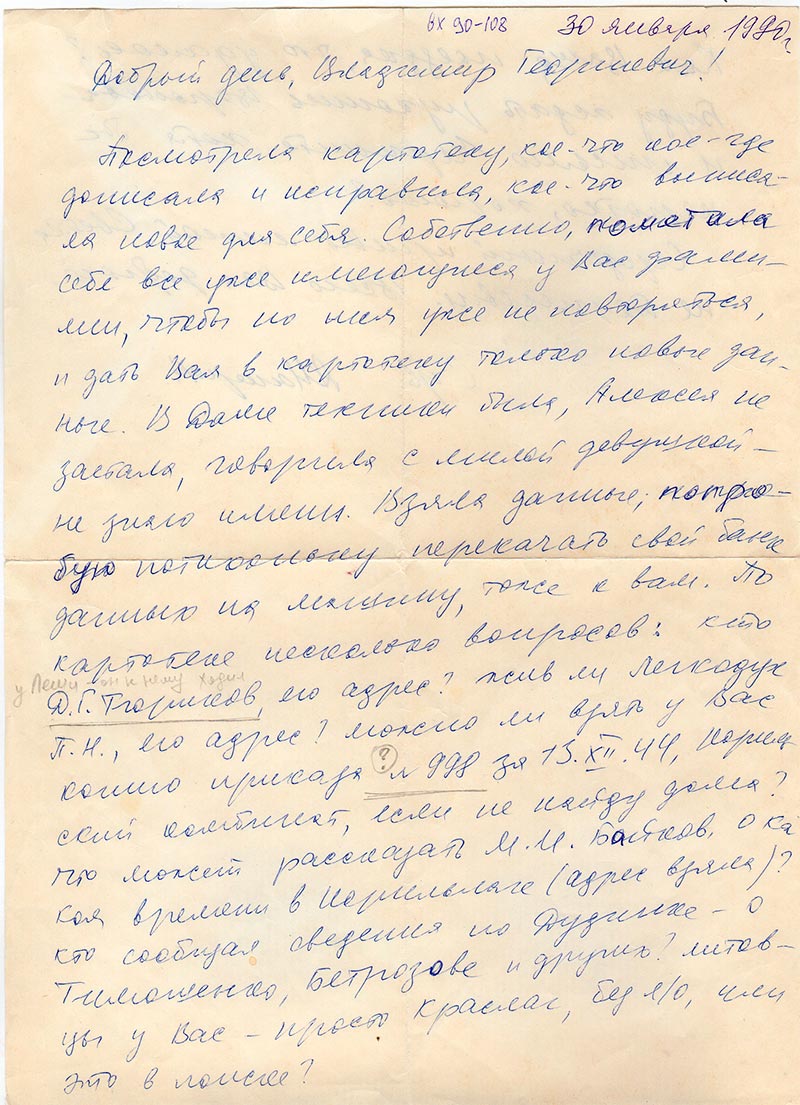 ВХ 90-108
30 января 1990г.
Добрый день, Владимир Георгиевич!
Посмотрела картотеку, кое-что кое-где
дописала и исправила, кое-что выписа-
ла новое для себя. Собственно, пометила
себе все уже имеющиеся у Вас фами-
лии, чтобы по ним уже не повторяться,
и дать Вам в картотеку только новые дан-
ные. В Доме техники была, Алексея не
застала, говорила с милой девушкой –
не знаю имени. Взяла данные, попро-
бую потихоньку перекачать свой банк
данных на машину, тоже к вам. По
картотеке несколько вопросов: кто
у Леши он к нему ходил
Д.Г. его адрес? жив ли Легкодух
П.Н., его адрес? можно ли взять у Вас
копию приказа (?) № 998 за 13.XII.44, Нориль-
ский комбинат, если не найду дома?
что может рассказать М.И. о ка-
ком времени в Норильлаге (адрес взяла)?
кто сообщал сведения по Дудинке – о
Тимошенко, Бетрозове и других? литов-
цы у Вас – просто Краслаг, без л/о, или
это в поиске?